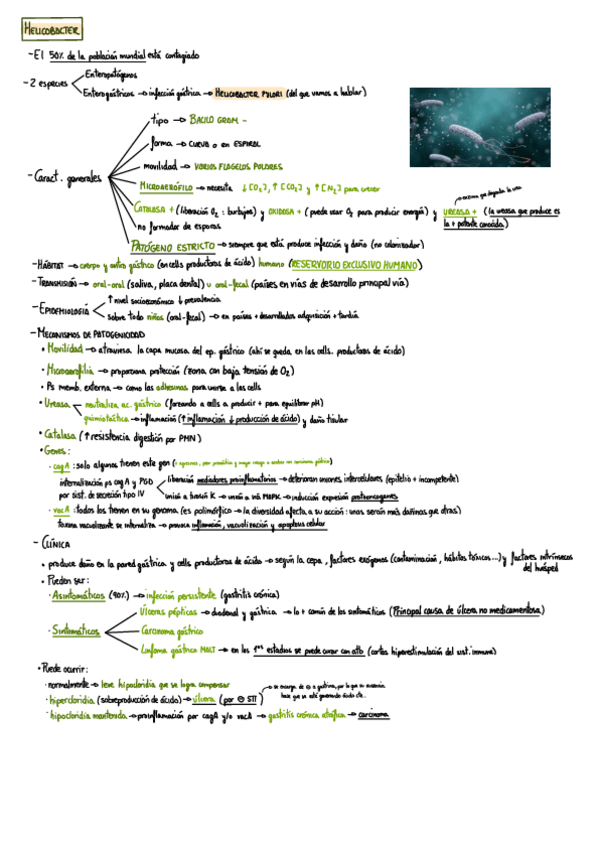 HELICOBACTER
- El 50% de la población mundial está contagiado
- 2 especies
Enteropatógenos
Enterogástricos → infección gástrica → HELICOBACTER PYLORI (del que vamos a hablar)
- Caract. generales
tipo → BACILO GRAM -
forma → CURVA o en ESPIRAL
movilidad → VARIOS FLAGELOS POLARES
MICROAERÓFILO → necesita ↓[O2], ↑[CO2] y ↑[N2] para crecer
→ enzima que degrada la urea
CATALASA + (liberación O2 : burbujas) y OXIDASA + (puede usar O2 para producir energía) y UREASA + (la ureasa que produce es la + potente conocida)
no formador de esporas
PATÓGENO ESTRICTO → siempre que está produce infección y daño (no colonizador)
- HÁBITAT → cuerpo y antro gástrico (en cells productoras de ácido) humano (RESERVORIO EXCLUSIVO HUMANO)
- TRANSMISIÓN → oral-oral (saliva, placa dental) u oral-fecal (países en vías de desarrollo principal vía)
- EPIDEMIOLOGÍA
↑ nivel socioeconómico ↓ prevalencia
sobre todo niños (oral-fecal) → en países + desarrollados adquisición + tardía
- MECANISMOS DE PATOGENICIDAD
• Movilidad → atraviesa la capa mucosa del ep. gástrico (ahí se queda en las cells. productoras de ácido)
• Microaerofilia → proporciona protección (zona con baja tensión de O2)
• Ps memb. externa → como las adhesinas para unirse a las cells
• Ureasa
neutraliza ac. gástrico (forzando a cells a producir + para equilibrar pH)
quimiotáctica → inflamación (↑ inflamación ↓ producción de ácido) y daño tisular
• Catalasa (↑ resistencia digestión por PMN)
• Genes:
· cagA : solo algunos tienen este gen
internalización ps cagA y PGD por sist. de secreción tipo IV
liberación mediadores proinflamatorios → deterioran uniones intercelulares (epitelio + incompetente)
→ inducción expresión protooncogenes
· vacA : todos los tienen en su genoma (es polimórfico → la diversidad afecta a su acción : unas serán más dañinas que otras)
toxina vacuolizante se internaliza → provoca inflamación, vacuolización y apoptosis celular
- CLÍNICA
• produce daño en la pared gástrica y cells productoras de ácido → según la cepa, factores exógenos (contaminación, hábitos tóxicos...) y factores intrínsecos del huésped
• Pueden ser:
· Asintomáticos (90%) → infección persistente (gastritis crónica)
· Sintomáticos
Úlceras pépticas → duodenal y gástrica → lo + común de los sintomáticos (Principal causa de úlcera no medicamentosa)
Carcinoma gástrico
Linfoma gástrico MALT → en los 1ros estadios se puede curar con atb (cortas hiperestimulación del sist. inmune)
• Puede ocurrir:
· normalmente → leve hipocloridia que se logra compensar
· hipercloridia (sobreproducción de ácido) → úlcera (por ⊖ STT)
· hipocloridia mantenida → proinflamación por cagA y/o vacA → gastritis crónica atrófica → carcinoma